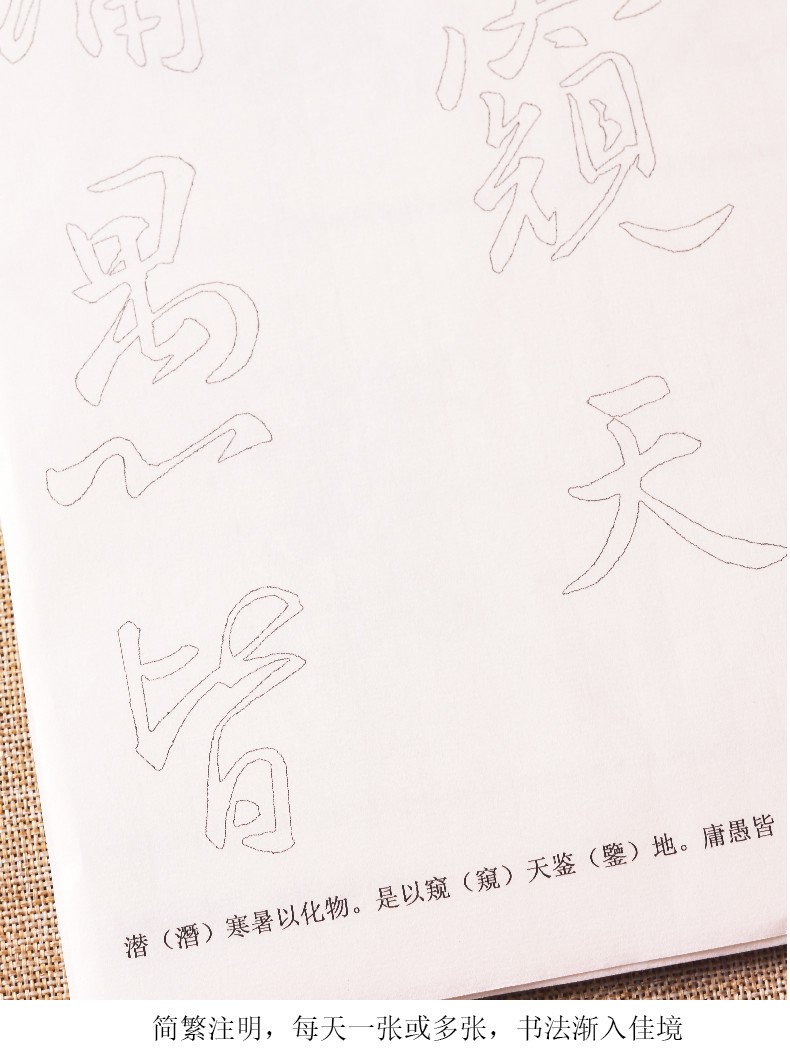 窺
天
庸
愚
皆
潜（潛）寒暑以化物。是以窥（窺）天鉴（鑒）地。庸愚皆
简繁注明，每天一张或多张，书法渐入佳境